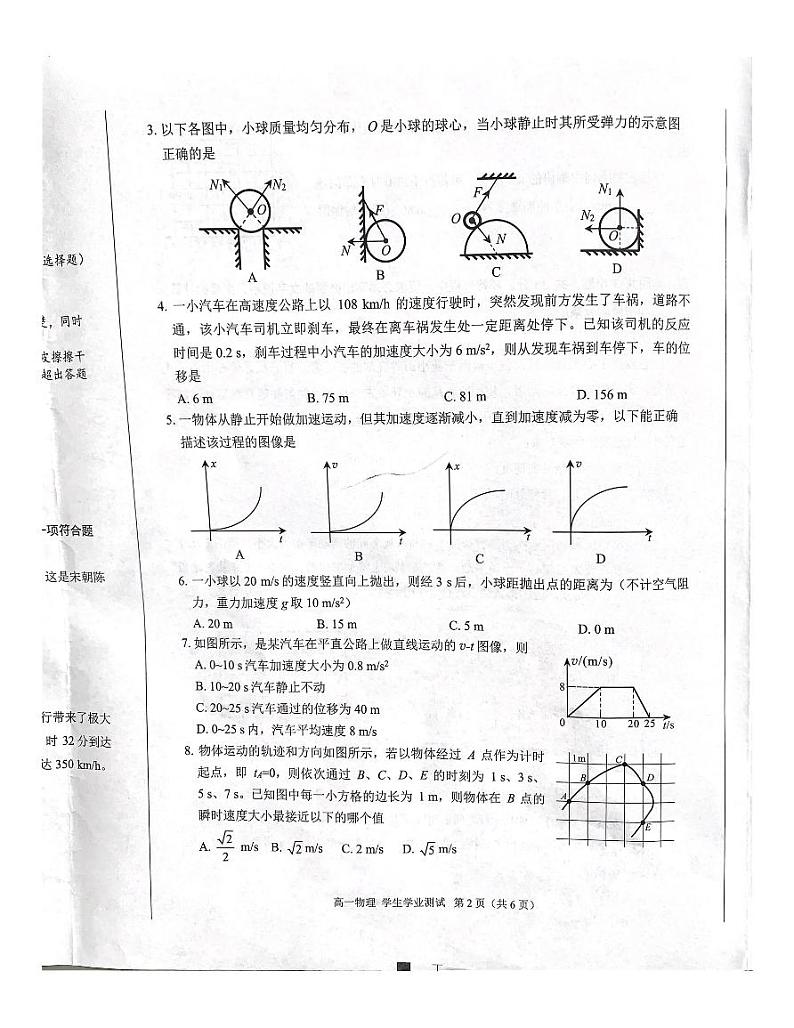 3. 以下各图中，小球质量均匀分布， O 是小球的球心，当小球静止时其所受弹力的示意图
正确的是
N₁ N₂ O A
F N O B
F O N C
N₁ N₂ O D
选择题）
4. 一小汽车在高速度公路上以 108 km/h 的速度行驶时，突然发现前方发生了车祸，道路不
，同时
通，该小汽车司机立即刹车，最终在离车祸发生处一定距离处停下。已知该司机的反应
皮擦擦干
时间是 0.2 s，刹车过程中小汽车的加速度大小为 6 m/s²，则从发现车祸到车停下，车的位
超出答题
移是
A. 6 m B. 75 m C. 81 m D. 156 m
5. 一物体从静止开始做加速运动，但其加速度逐渐减小，直到加速度减为零，以下能正确
描述该过程的图像是
x t A
v t B
x t C
v t D
一项符合题
这是宋朝陈
6. 一小球以 20 m/s 的速度竖直向上抛出，则经 3 s 后，小球距抛出点的距离为（不计空气阻
力，重力加速度 g 取 10 m/s²）
A. 20 m B. 15 m C. 5 m D. 0 m
7. 如图所示，是某汽车在平直公路上做直线运动的 v-t 图像，则
A. 0~10 s 汽车加速度大小为 0.8 m/s²
B. 10~20 s 汽车静止不动
C. 20~25 s 汽车通过的位移为 40 m
D. 0~25 s 内，汽车平均速度 8 m/s
v/(m/s)
8
0 10 20 25 t/s
行带来了极大
时 32 分到达
达 350 km/h。
8. 物体运动的轨迹和方向如图所示，若以物体经过 A 点作为计时
起点，即 tA=0，则依次通过 B、C、D、E 的时刻为 1 s、3 s、
5 s、7 s。已知图中每一小方格的边长为 1 m，则物体在 B 点的
瞬时速度大小最接近以下的哪个值
A. √2/2 m/s B. √2 m/s C. 2 m/s D. √5 m/s
1m A B C D E
高一物理 学生学业测试 第 2 页（共 6 页）